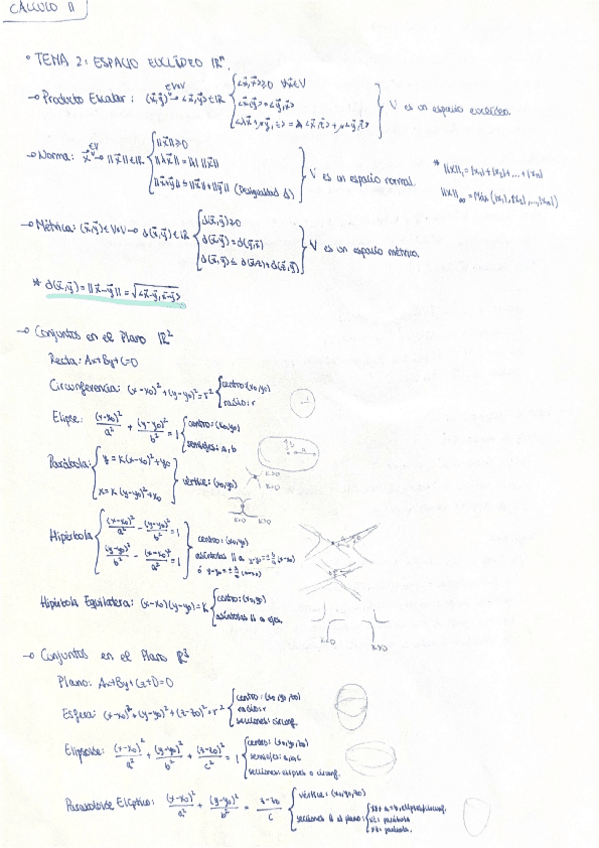 CÁLCULO II
• TEMA 2: ESPACIO EUCLÍDEO ℝⁿ.
→ Producto Escalar: (x⃗,y⃗) ∈VxV → <x⃗,y⃗> ∈ ℝ { <x⃗,x⃗> ≥0 ∀x⃗∈V
<x⃗,y⃗> = <y⃗,x⃗> } V es un espacio euclídeo.
<λx⃗+μy⃗,z⃗> = λ<x⃗,z⃗>+μ<y⃗,z⃗>
→ Norma: x⃗ ∈V → ||x⃗|| ∈ ℝ { ||x⃗|| ≥0
||λx⃗|| = |λ| ||x⃗|| } V es un espacio normal.
||x⃗+y⃗|| ≤ ||x⃗||+||y⃗|| (Desigualdad Δ)
* ||x||₁ = |x₁|+|x₂|+...+|xₙ|
||x||∞ = Máx (|x₁|,|x₂|,...,|xₙ|)
→ Métrica: (x⃗,y⃗) ∈ VxV → d(x⃗,y⃗) ∈ ℝ { d(x⃗,y⃗) ≥0
d(x⃗,y⃗) = d(y⃗,x⃗) } V es un espacio métrico.
d(x⃗,y⃗) ≤ d(x⃗,z⃗)+d(z⃗,y⃗)
* d(x⃗,y⃗) = ||x⃗-y⃗|| = √<x⃗-y⃗,x⃗-y⃗>
→ Conjuntos en el Plano ℝ²
Recta: Ax+By+C=0
Circunferencia: (x-x₀)²+(y-y₀)²=r² { centro: (x₀,y₀)
radio: r
Elipse: (x-x₀)²/a² + (y-y₀)²/b² = 1 { centro: (x₀,y₀)
semiejes: a,b
Parábola: { y = K(x-x₀)²+y₀
x = K(y-y₀)²+x₀ } vértice: (x₀,y₀)
K>0
K<0
K<0 K>0
Hipérbola { (x-x₀)²/a² - (y-y₀)²/b² = 1
(y-y₀)²/b² - (x-x₀)²/a² = 1 } centro: (x₀,y₀)
asíntotas || a y-y₀=±b/a(x-x₀)
Hipérbola Equilátera: (x-x₀)(y-y₀)=K { centro: (x₀,y₀)
asíntotas || a ejes.
K<0 K>0
→ Conjuntos en el Plano ℝ³
Plano: Ax+By+Cz+D=0
Esfera: (x-x₀)²+(y-y₀)²+(z-z₀)²=r² { centro: (x₀,y₀,z₀)
radio: r
secciones: circunf.
Elipsoide: (x-x₀)²/a² + (y-y₀)²/b² + (z-z₀)²/c² = 1 { centro: (x₀,y₀,z₀)
semiejes: a,b,c
secciones: elipses o circunf.
Paraboloide Elíptico: (x-x₀)²/a² + (y-y₀)²/b² = z-z₀/c { vértice: (x₀,y₀,z₀)
secciones || al plano: